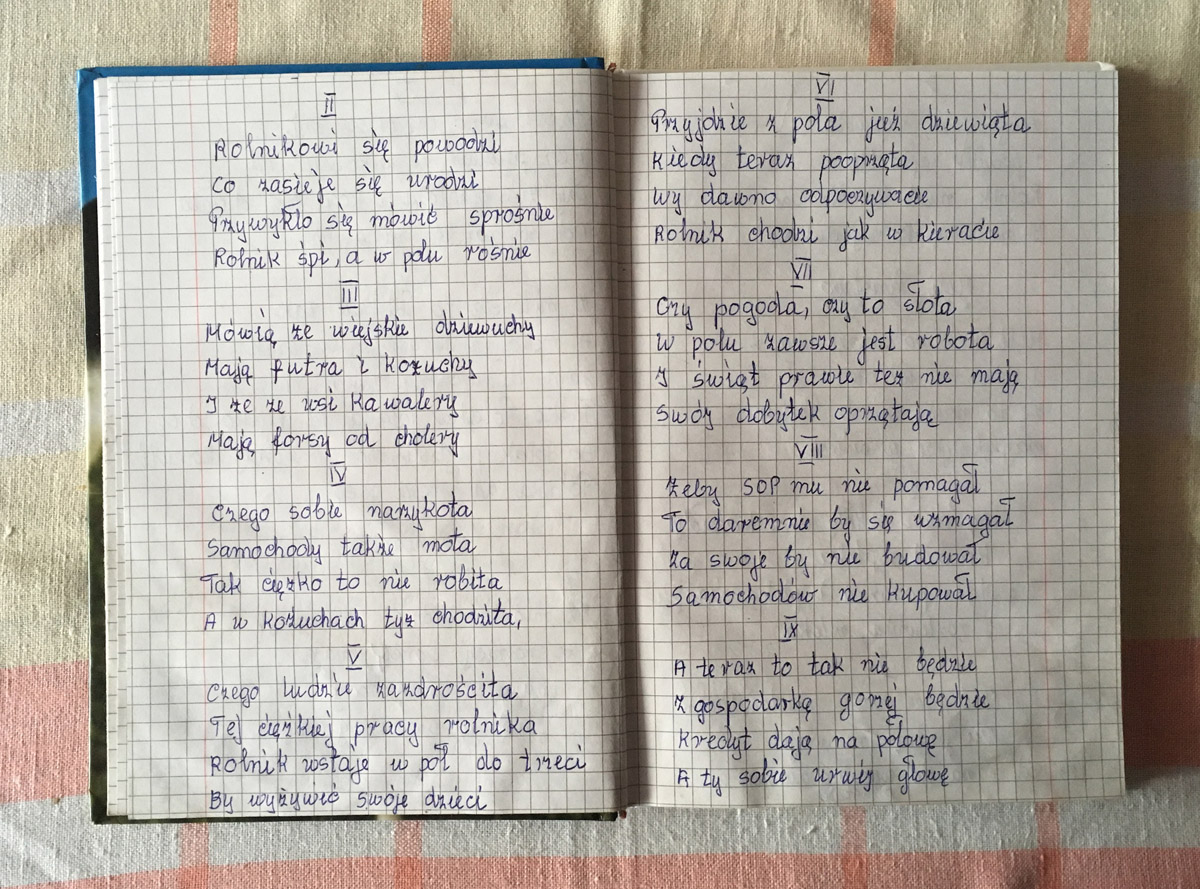 II
Rolnikowi się powodzi
Co zasieje się urodzi
Przywykło się mówić sprośnie
Rolnik śpi, a w polu rośnie
III
Mówią ze wiejskie dziewuchy
Mają futra i kozuchy
I ze ze wsi kawalery
Mają forsy od cholery
IV
Czego sobie narzykota
Samochody także mota
Tak cięzko to nie robita
A w kożuchach tyz chodzita,
V
Czego ludzie zazdrościta
Tej ciężkiej pracy rolnika
Rolnik wstaje w pół do trzeci
By wyżywić swoje dzieci
VI
Przyjdzie z pola już dziewiąta
Kiedy teraz pooprząta
Wy dawno odpoczywacie
Rolnik chodzi jak w kieracie
VII
Czy pogoda, czy to słota
W polu zawsze jest robota
I świąt prawie tez nie mają
Swój dobytek oprzątają
VIII
Zeby SOP mu nie pomagał
To daremnie by się wzmagał
Za swoje by nie budował
Samochodów nie kupował
IX
A teraz to tak nie będzie
Z gospodarką gorzej będzie
Kredyt dają na połowę
A ty sobie urwij głowę